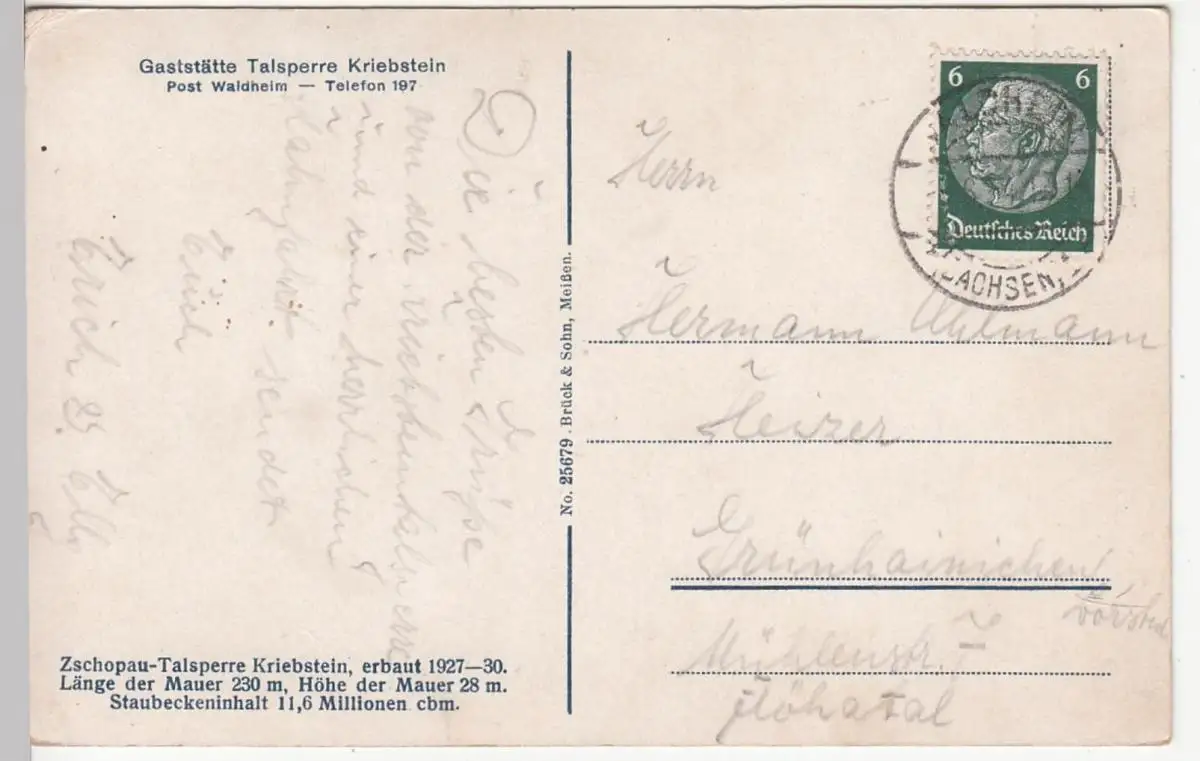 Gaststätte Talsperre Kriebstein
Post Waldheim — Telefon 197
Die besten Grüße
von der Kriebsteintalsperre
und einer herrlichen
sendet
Euch
Erich & Elly
Zschopau-Talsperre Kriebstein, erbaut 1927—30.
Länge der Mauer 230 m, Höhe der Mauer 28 m.
Staubeckeninhalt 11,6 Millionen cbm.
No. 25679. Brück & Sohn, Meißen.
6 6
Deutsches Reich
(SACHSEN)
Herrn
Hermann Uhlmann
Heizer
Grünhainichen
Flöhatal